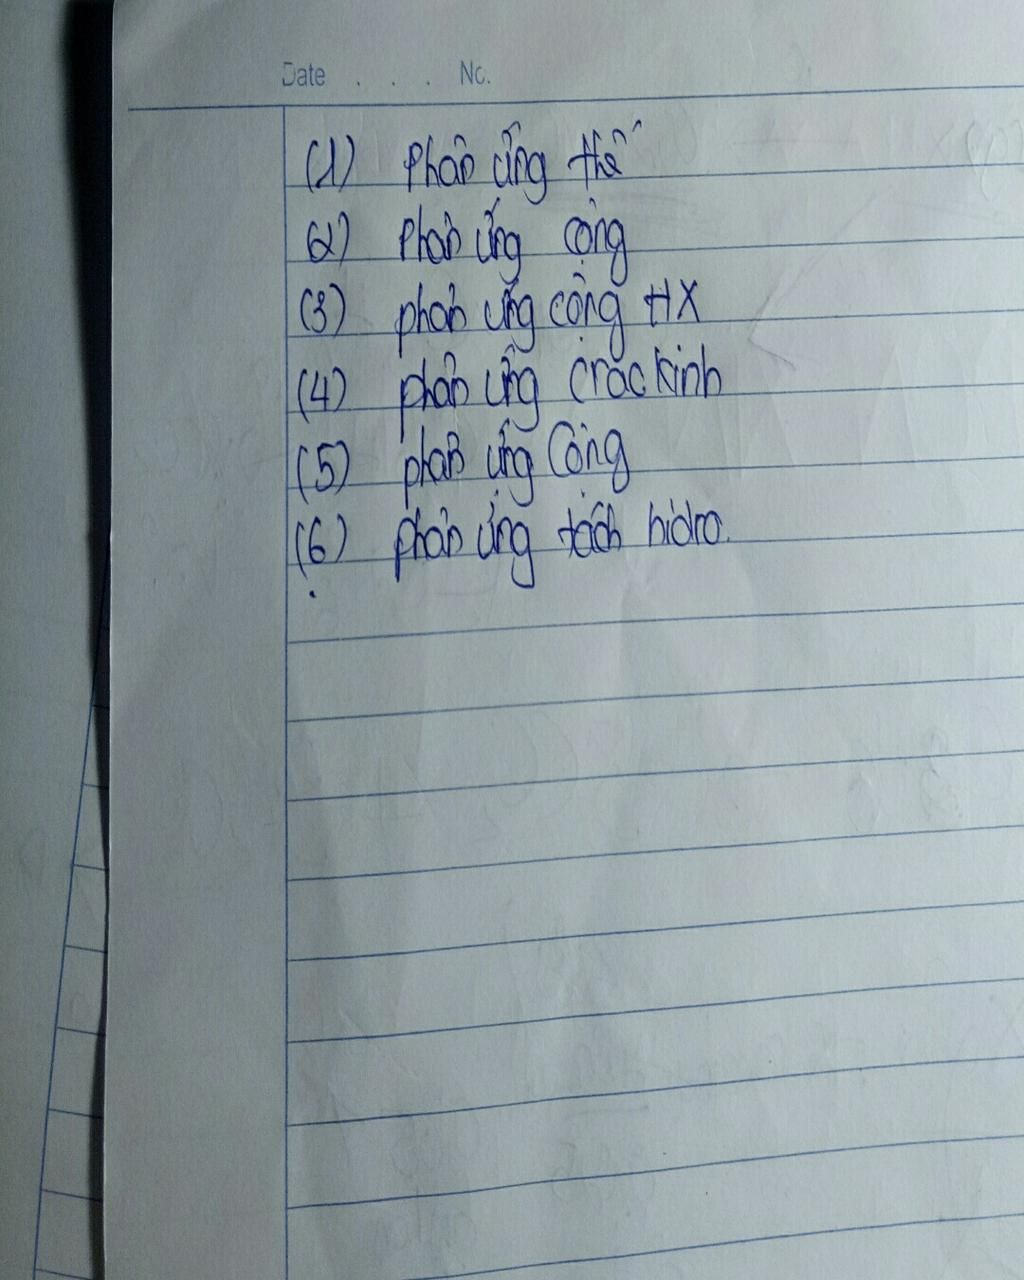 Date . . . No.
(1) Phản ứng thế
(2) Phản ứng cộng
(3) phản ứng cộng HX
(4) phản ứng crackinh
(5) phản ứng Cộng
(6) phản ứng tách hidro.